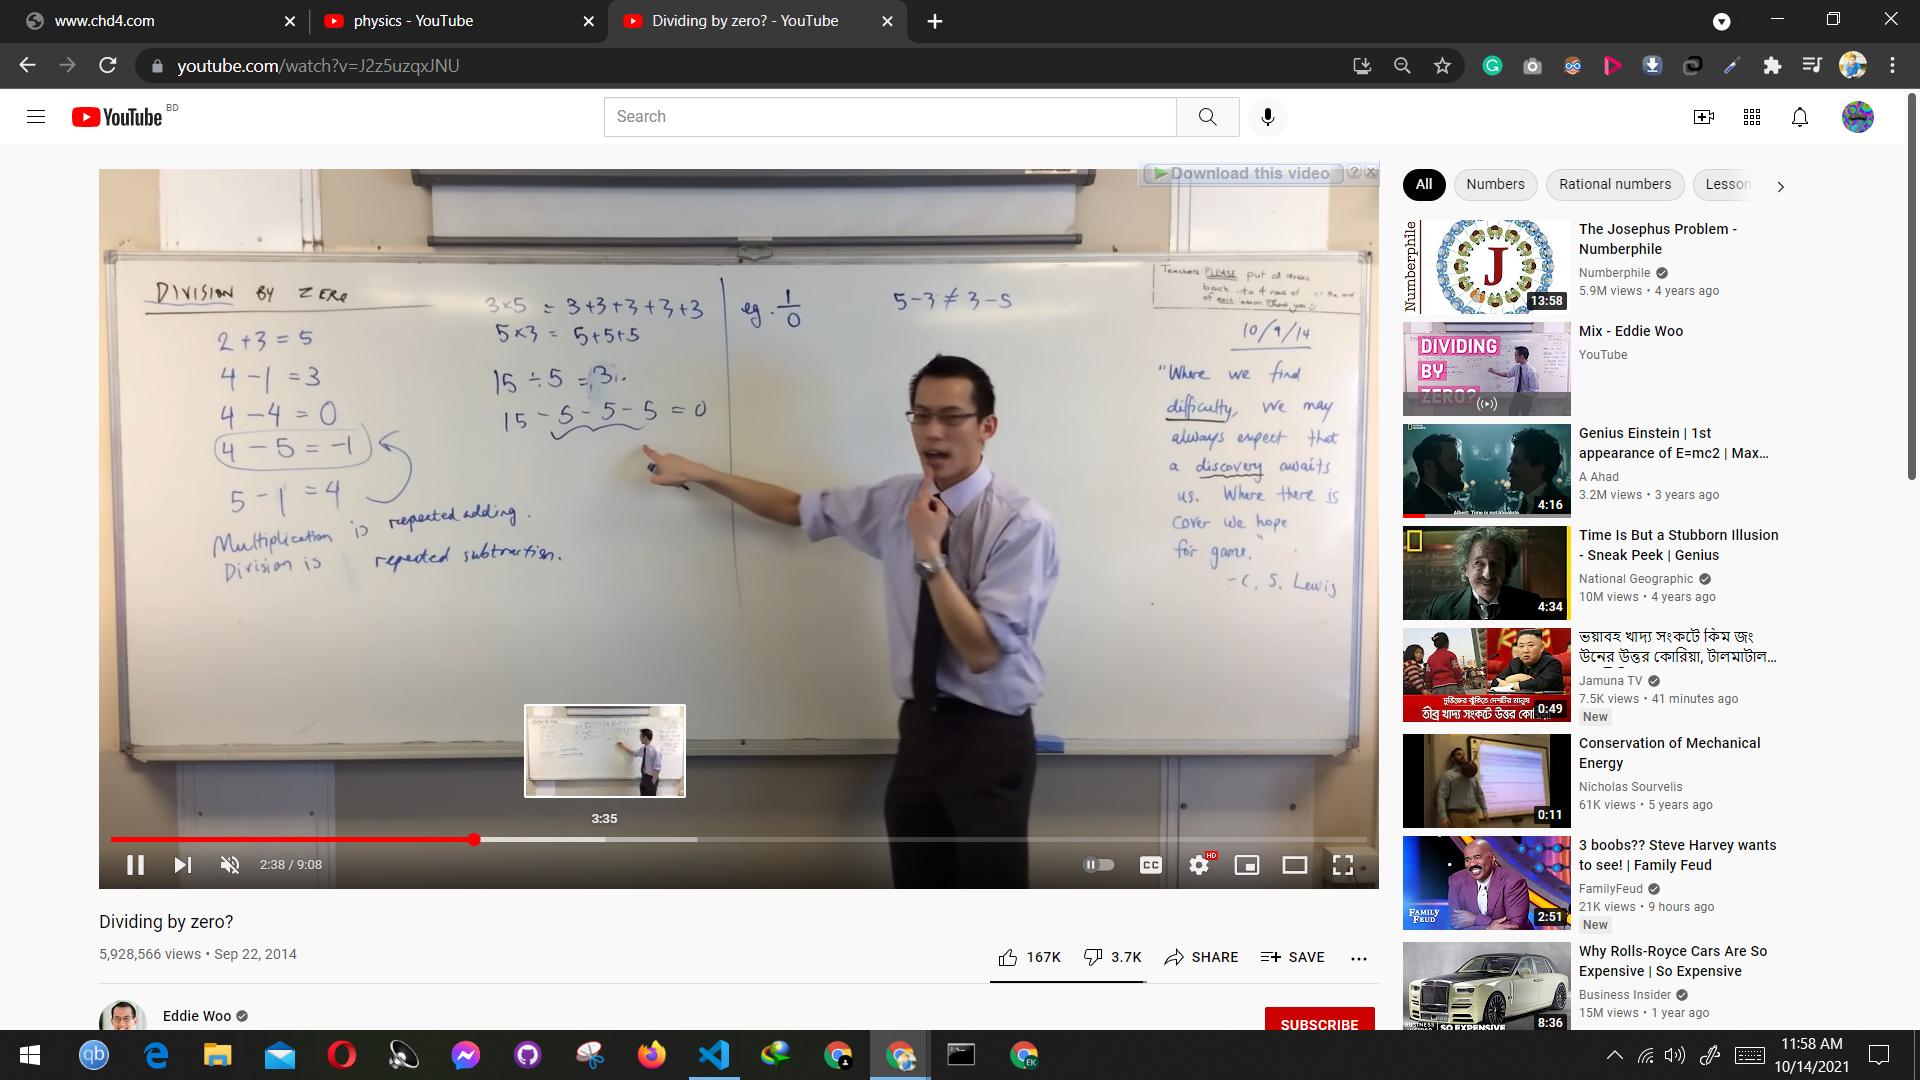 www.chd4.com
physics - YouTube
Dividing by zero? - YouTube
youtube.com/watch?v=J2z5uzqxJNU
YouTube BD
Search
Download this video
DIVISION BY ZERO
2+3=5
4-1=3
4-4=0
4-5=-1
5-1=4
Multiplication is repeated adding.
Division is repeated subtraction.
3×5 = 3+3+3+3+3
5×3 = 5+5+5
15÷5 = 3.
15-5-5-5=0
eg. 1/0
5-3≠3-5
Teachers PLEASE put all
back into 4 rows of
of each lesson Thank you
10/9/14
"Where we find
difficulty, we may
always expect that
a discovery awaits
us. Where there is
cover we hope
for game."
- C. S. Lewis
3:35
2:38 / 9:08
CC
HD
Dividing by zero?
5,928,566 views • Sep 22, 2014
167K
3.7K
SHARE
SAVE
Eddie Woo
SUBSCRIBE
All
Numbers
Rational numbers
Lesson
Numberphile
J
13:58
The Josephus Problem -
Numberphile
Numberphile
5.9M views • 4 years ago
DIVIDING
BY
ZERO?
Mix - Eddie Woo
YouTube
4:16
Genius Einstein | 1st
appearance of E=mc2 | Max...
A Ahad
3.2M views • 3 years ago
4:34
Time Is But a Stubborn Illusion
- Sneak Peek | Genius
National Geographic
10M views • 4 years ago
তীব্র খাদ্য সংকটে উত্তর
0:49
ভয়াবহ খাদ্য সংকটে কিম জং
উনের উত্তর কোরিয়া, টালমাটাল...
Jamuna TV
7.5K views • 41 minutes ago
New
0:11
Conservation of Mechanical
Energy
Nicholas Sourvelis
61K views • 5 years ago
FAMILY
FEUD
2:51
3 boobs?? Steve Harvey wants
to see! | Family Feud
FamilyFeud
21K views • 9 hours ago
New
SO EXPENSIVE
8:36
Why Rolls-Royce Cars Are So
Expensive | So Expensive
Business Insider
15M views • 1 year ago
qb
EK
11:58 AM
10/14/2021